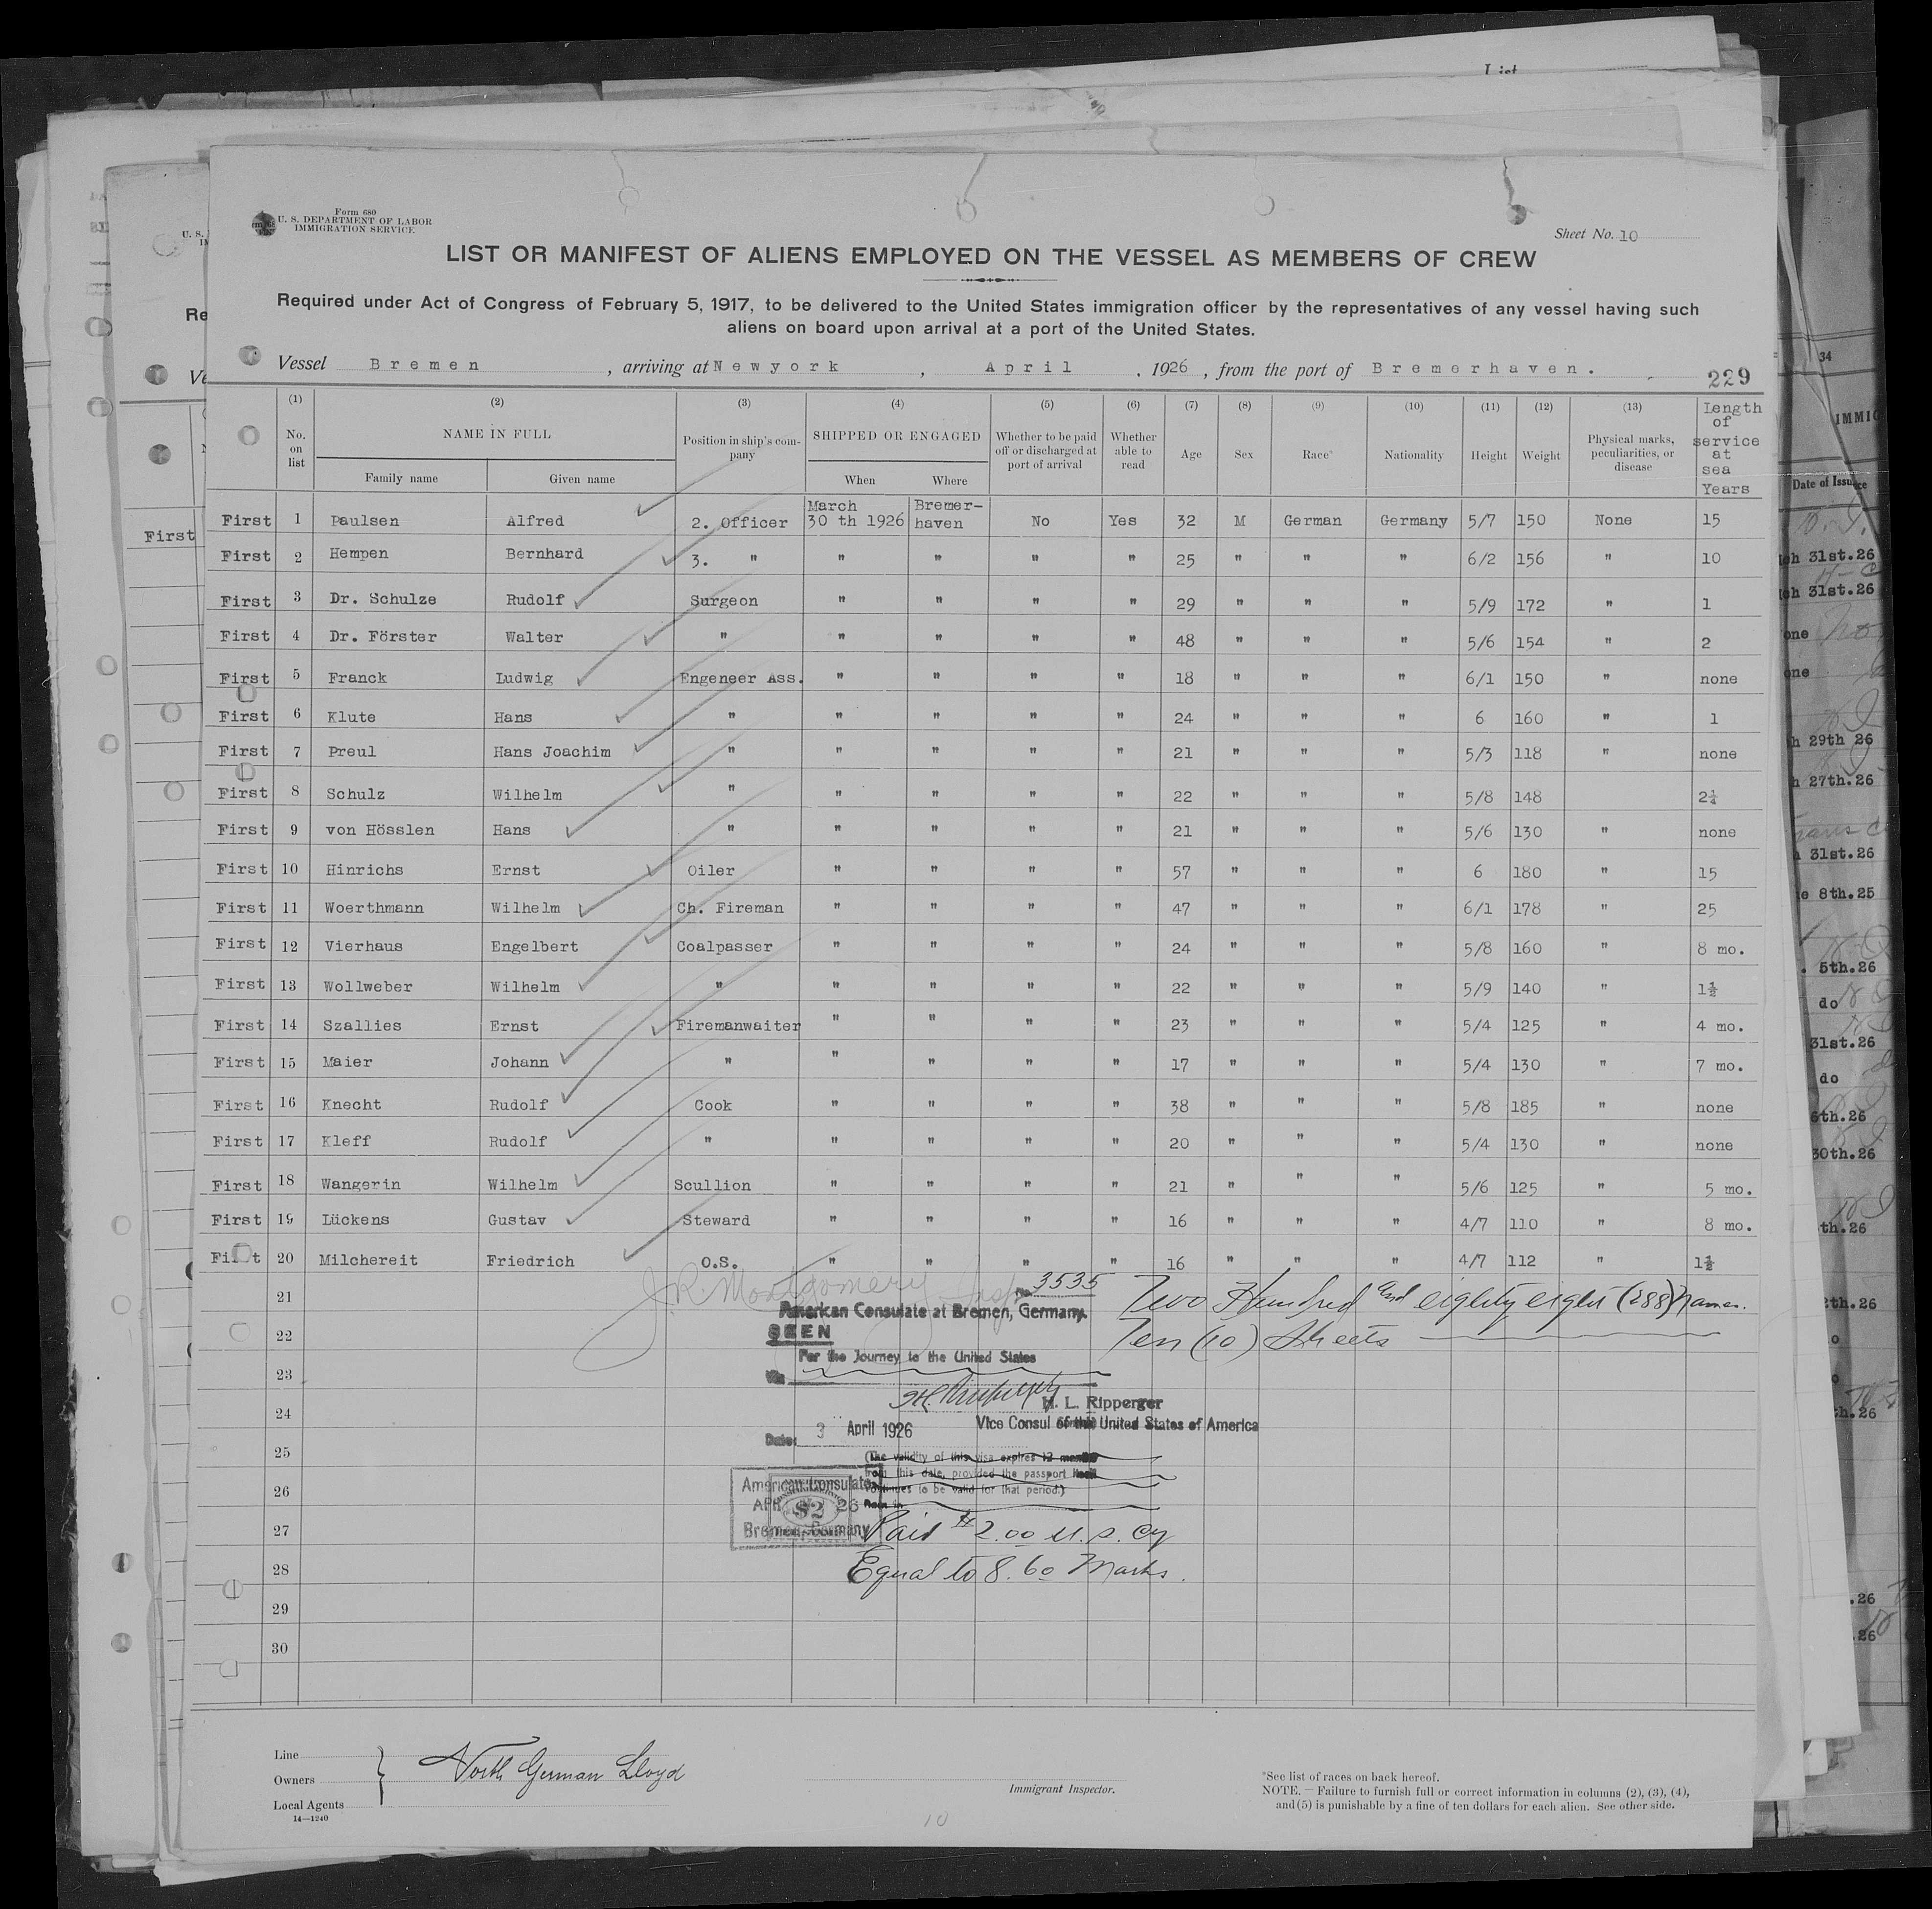 List
Form 680
U. S. DEPARTMENT OF LABOR
IMMIGRATION SERVICE
Sheet No. 10
LIST OR MANIFEST OF ALIENS EMPLOYED ON THE VESSEL AS MEMBERS OF CREW
Required under Act of Congress of February 5, 1917, to be delivered to the United States immigration officer by the representatives of any vessel having such
aliens on board upon arrival at a port of the United States.
Vessel Bremen, arriving at Newyork, April, 1926, from the port of Bremerhaven.
229
(1) (2) (3) (4) (5) (6) (7) (8) (9) (10) (11) (12) (13) Length of service at sea Years
No. on list NAME IN FULL Position in ship's company SHIPPED OR ENGAGED Whether to be paid off or discharged at port of arrival Whether able to read Age Sex Race* Nationality Height Weight Physical marks, peculiarities, or disease
Family name Given name When Where
First 1 Paulsen Alfred 2. Officer March 30 th 1926 Bremer-haven No Yes 32 M German Germany 5/7 150 None 15
First 2 Hempen Bernhard 3. " " " " " 25 " " " 6/2 156 " 10
First 3 Dr. Schulze Rudolf Surgeon " " " " 29 " " " 5/9 172 " 1
First 4 Dr. Förster Walter " " " " " 48 " " " 5/6 154 " 2
First 5 Franck Ludwig Engeneer Ass. " " " " 18 " " " 6/1 150 " none
First 6 Klute Hans " " " " " 24 " " " 6 160 " 1
First 7 Preul Hans Joachim " " " " " 21 " " " 5/3 118 " none
First 8 Schulz Wilhelm " " " " " 22 " " " 5/8 148 2¼
First 9 von Hösslen Hans " " " " " 21 " " " 5/6 130 " none
First 10 Hinrichs Ernst Oiler " " " " 57 " " " 6 180 " 15
First 11 Woerthmann Wilhelm Ch. Fireman " " " " 47 " " " 6/1 178 " 25
First 12 Vierhaus Engelbert Coalpasser " " " " 24 " " " 5/8 160 " 8 mo.
First 13 Wollweber Wilhelm " " " " " 22 " " " 5/9 140 " 1½
First 14 Szallies Ernst Firemanwaiter " " " " 23 " " " 5/4 125 " 4 mo.
First 15 Maier Johann " " " " " 17 " " " 5/4 130 " 7 mo.
First 16 Knecht Rudolf Cook " " " " 38 " " " 5/8 185 " none
First 17 Kleff Rudolf " " " " " 20 " " " 5/4 130 " none
First 18 Wangerin Wilhelm Scullion " " " " 21 " " " 5/6 125 " 5 mo.
First 19 Lückens Gustav Steward " " " " 16 " " " 4/7 110 " 8 mo.
First 20 Milchereit Friedrich O.S. " " " " 16 " " " 4/7 112 " 1½
21
22
23
24
25
26
27
28
29
30
J.R. Montgomery Insp
No. 3535
American Consulate at Bremen, Germany.
SEEN
For the Journey to the United States
Via
H. L. Ripperger
Vice Consul of the United States of America
Date: 3 April 1926
(The validity of this visa expires 12 months
from this date, provided the passport itself
continues to be valid for that period.)
Two Hundred and eighty eight (288) names.
Ten (10) Sheets
American Consulate
APR $2 26
Bremen, Germany
Paid $2.00 U.S. Cy
Equal to 8.60 Marks.
Line
Owners
Local Agents
North German Lloyd
14—1240
Immigrant Inspector.
*See list of races on back hereof.
NOTE.—Failure to furnish full or correct information in columns (2), (3), (4),
and (5) is punishable by a fine of ten dollars for each alien. See other side.
10
U. S.
Re
First
34
IMMIG
Date of Issue
31st.26
31st.26
29th 26
27th.26
31st.26
8th.25
5th.26
do
31st.26
do
6th.26
30th.26
th.26